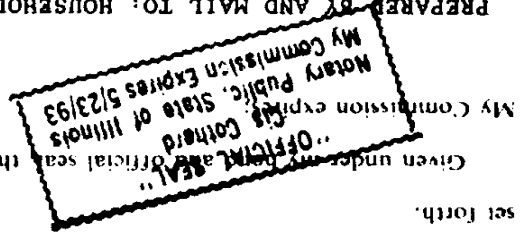 set forth.
Given under my hand and official seal, th
My Commission expires
"OFFICIAL SEAL"
Notary Public, State of Illinois
My Commission Expires 5/23/93
PREPARED BY AND MAIL TO: HOUSEHO